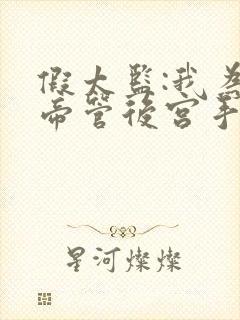 假太監:我為
帝管後宮手
星河燦燦